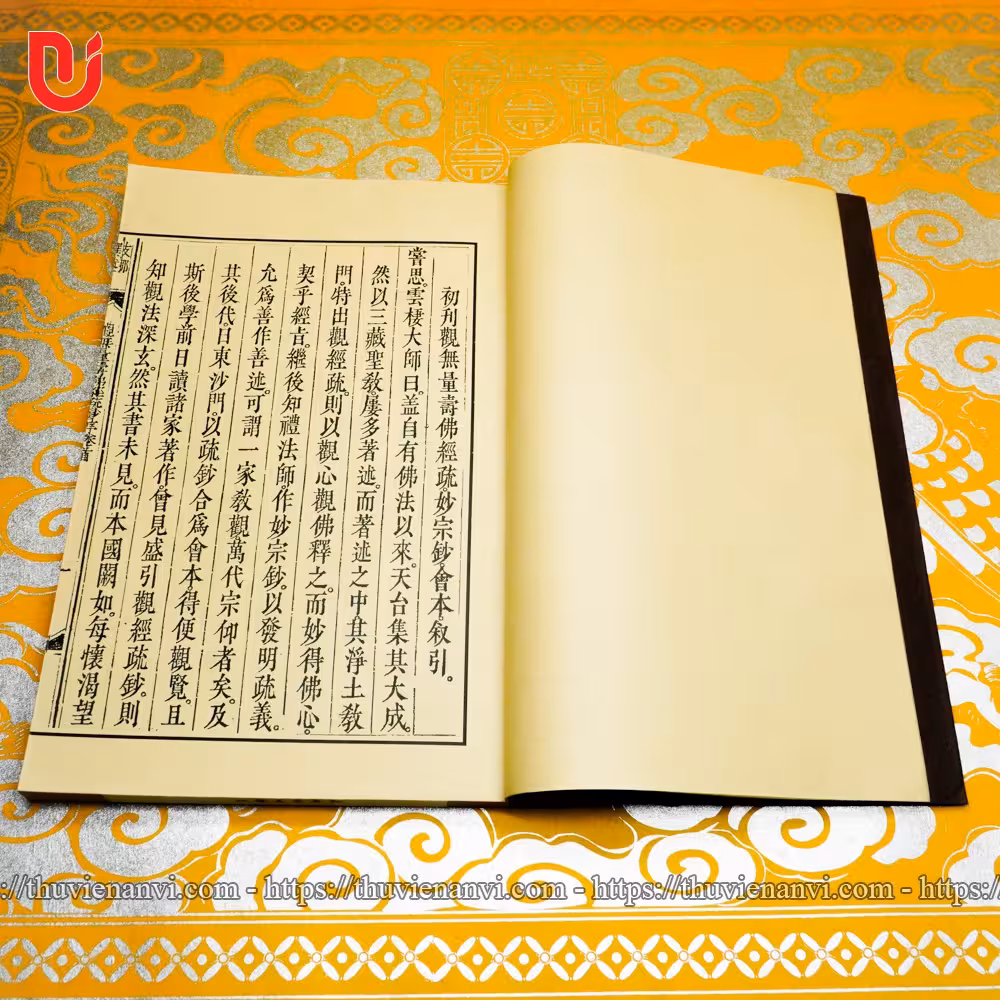 初刊觀無量壽佛經疏妙宗鈔會本叙引。
嘗思。雲棲大師曰。盖自有佛法以來。天台集其大成。
然以三藏聖敎。屢多著述。而著述之中。其淨土敎
門。特出觀經疏。則以觀心觀佛釋之。而妙得佛心。
契乎經旨。繼後知禮法師。作妙宗鈔。以發明疏義。
允爲善作善述。可謂一家敎觀。萬代宗仰者矣。及
其後代。日東沙門。以疏鈔合爲會本。得便觀覽。且
斯後學。前日讀諸家著作。曾見盛引觀經疏鈔。則
知觀法深玄。然其書未見。而本國闕如。每懷渴望
https://thuvienanvi.com - https://thuvienanvi.com - https://thuvienanvi.com - https://